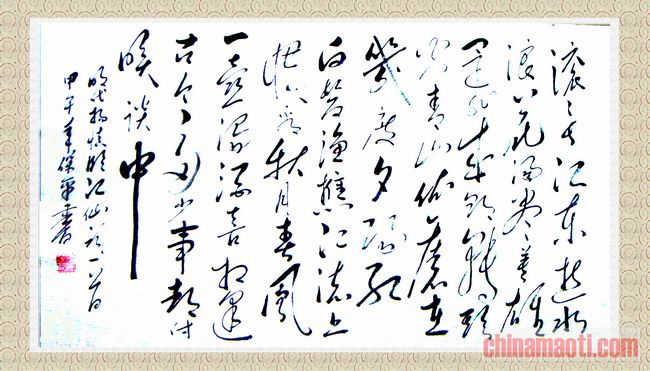 滚滚长江东逝水
浪花淘尽英雄
是非成败转头
空青山依旧在
几度夕阳红
白发渔樵江渚上
惯看秋月春风
一壶浊酒喜相逢
古今多少事都付
笑谈中
明代杨慎临江仙词一首
甲午年保平书
chinamaoti.com